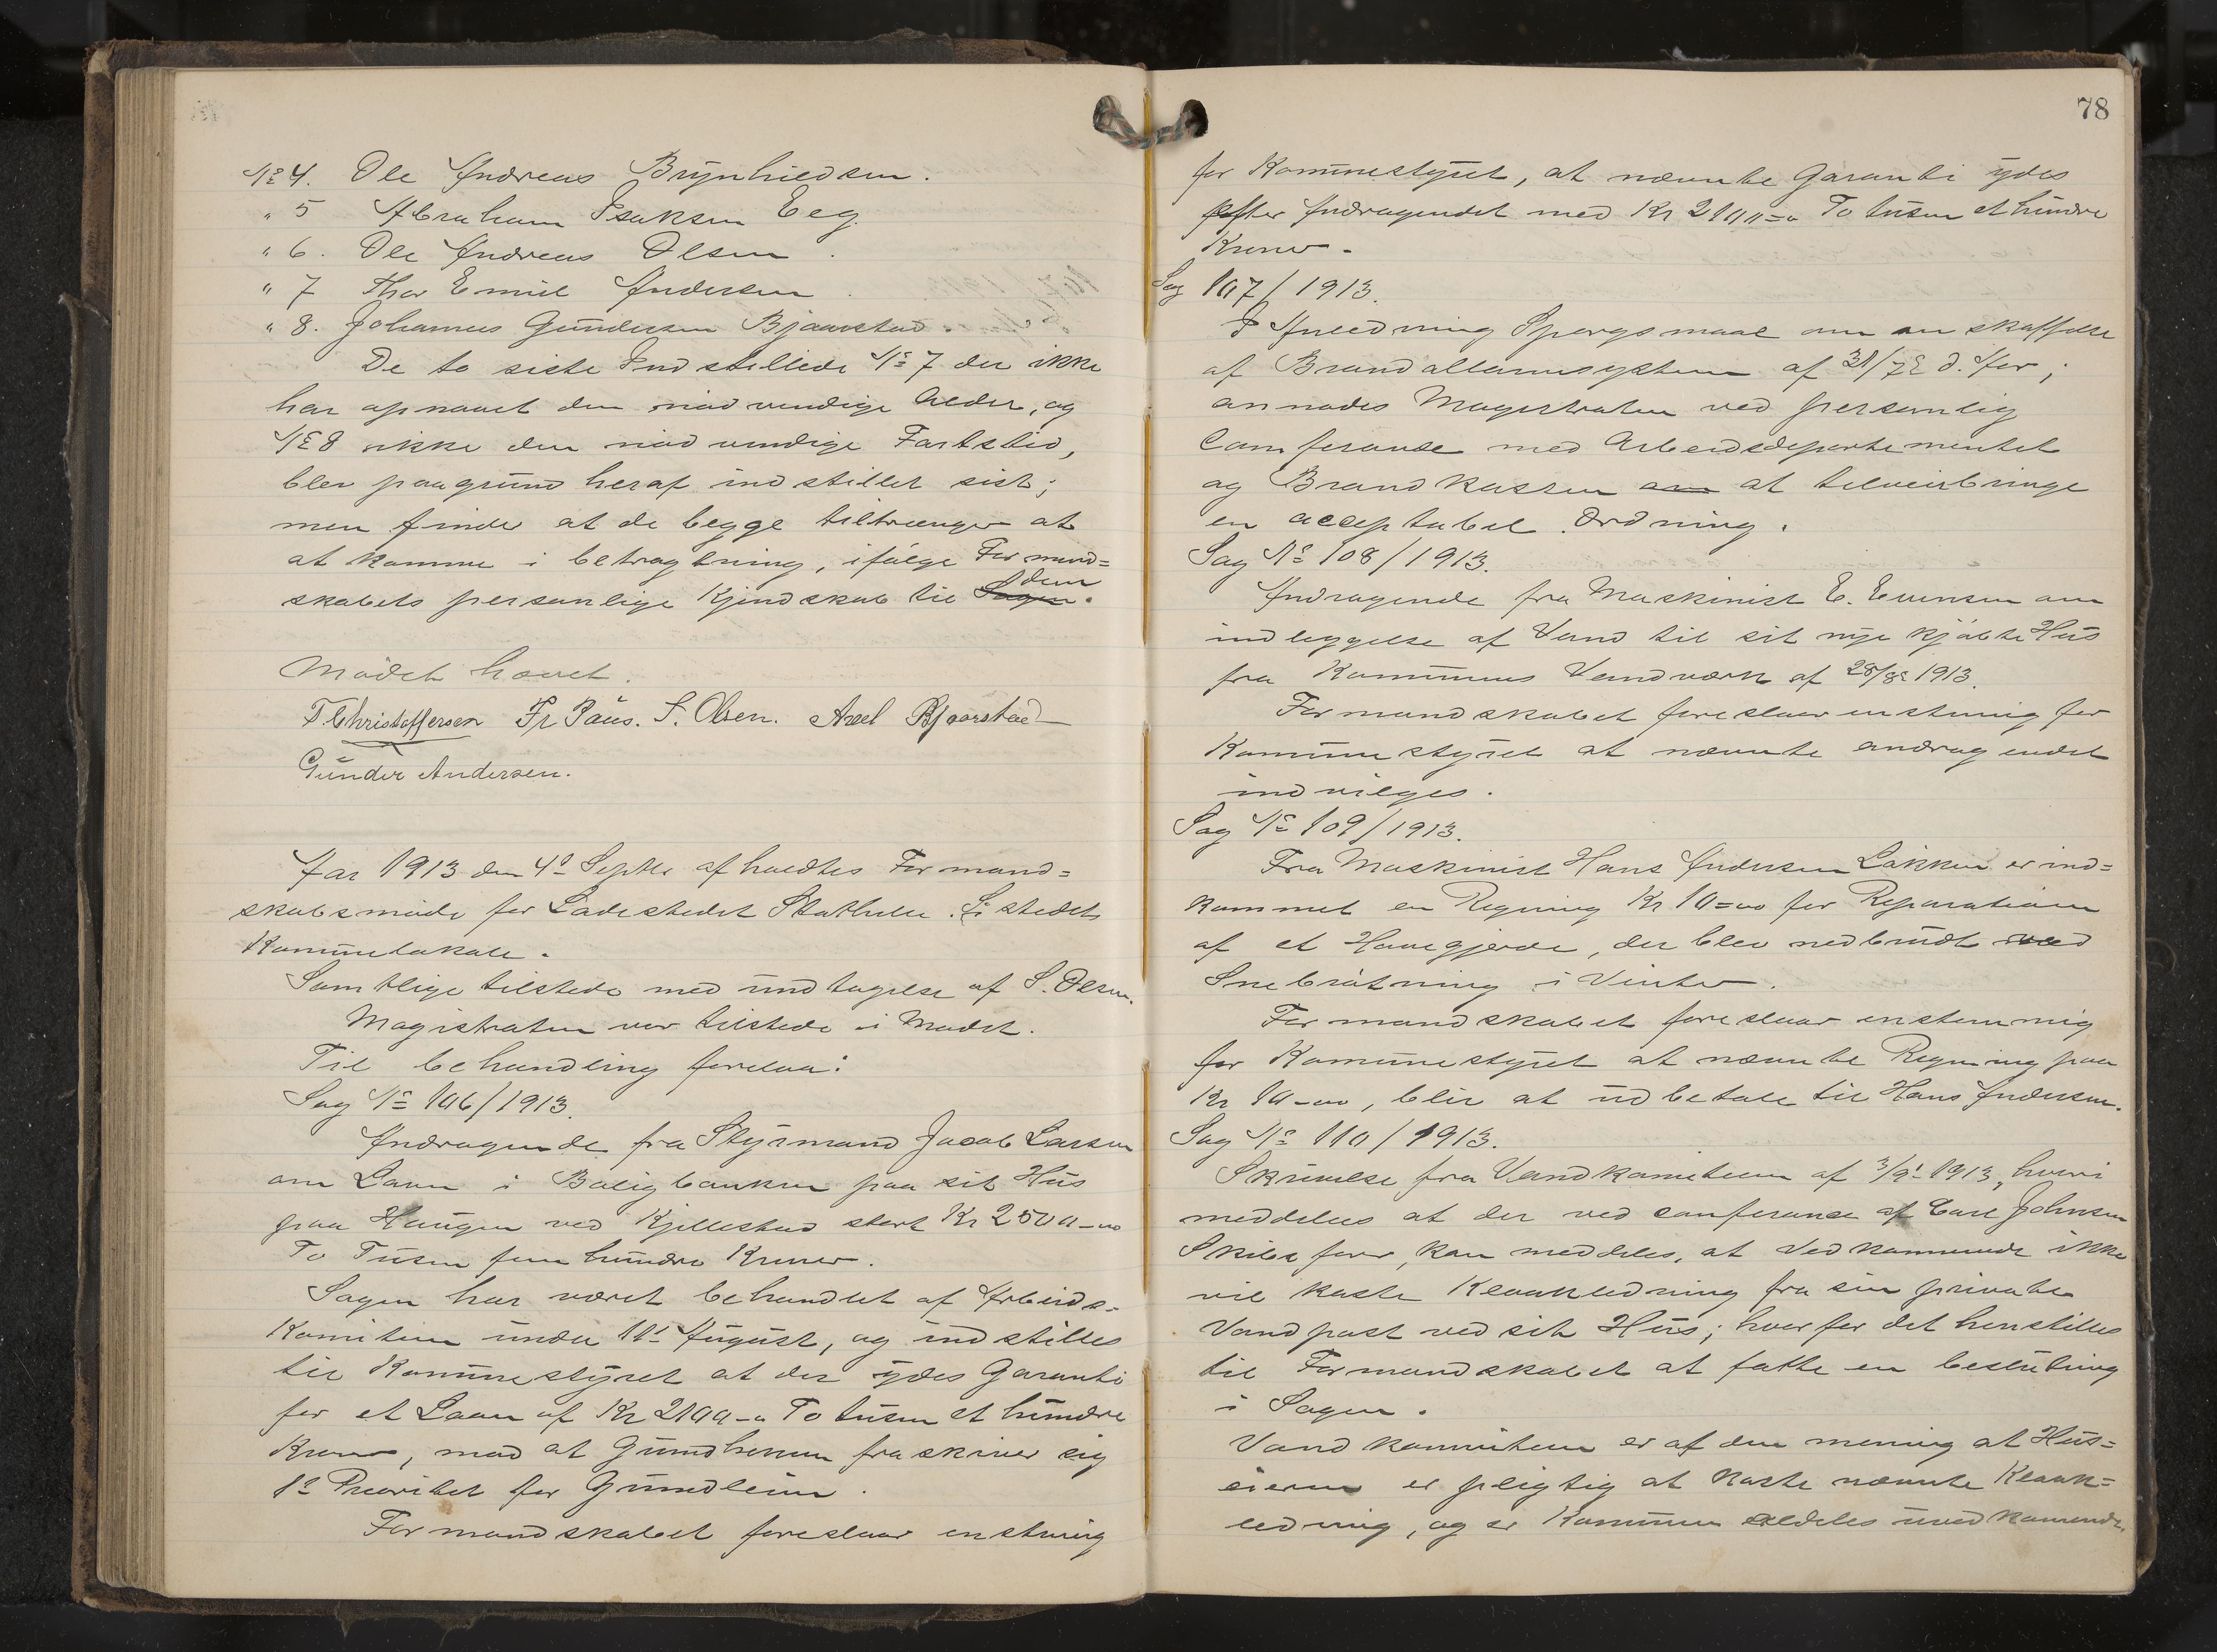 No 4. Ole Andreas Brynhildsen.
" 5 Abraham Isaksen Eeg.
" 6. Ole Andreas Olsen.
" 7 Thor Emil Andersen.
" 8. Johannes Gundersen Bjaarstad.
De to siste Indstillede No 7 der ikke
har opnaaet den nødvendige Alder, og
No 8 ikke den nødvendige Fartstid,
blev paagrund heraf indstillet sist;
men finder at de begge tiltrænger at
at komme i betragtning, ifølge Formand=
skabets personlige Kjendskab til Sagen. dem
Mødet hævet.
T. Christoffersen Fr Paus. S. Olsen. Axel Bjaarstad
Gunder Andersen.
Aar 1913 den 4de Septbr afholdtes Formand=
skabsmøde for Ladestedet Stathelle. I stedets
Kommunelokale.
Samtlige tilstede med undtagelse af S. Olsen.
Magistraten var tilstede i Mødet.
Til behandling forelaa:
Sag No 106/1913.
Andragende fra Styrmand Jacob Larsen
om Laan i Boligbanken paa sit Hus
paa Haugen ved Kjellestad stort Kr 2500-00
To Tusen fem hundre Kroner.
Sagen har været behandlet af Arbeids-
Komiteen under 11te August, og indstilles
til Kommunestyret at der ydes Garanti
for et Laan af Kr 2100-00 To tusen et hundre
Kroner, mod at Grundherren fraskriver sig
1ste Prioritet for Grundleien.
Formandskabet foreslaar enstemmig
78
for Kommunestyret, at nævnte Garanti ydes
efter Andragendet med Kr 2100=00 To tusen et hundre
Kroner.
Sag 107/1913.
I Anledning Spørgsmaal om anskaffelse
af Brandallarmsystem af 31/7 d. Aar;
anmodes Magistraten ved personlig
Conferance med Arbeidsdepartementet
og Brandkassen om at tilveiebringe
en acceptabel Ordning.
Sag No 108/1913.
Andragende fra Maskinist E. Evensen om
indleggelse af Vand til sit nye kjøbte Hus
fra Kommunens Vandværk af 28/8 1913.
Formandskabet foreslaar enstemmig for
Kommunestyret at nævnte andragendet
indvilges.
Sag No 109/1913.
Fra Maskinist Hans Andersen Løkken er ind=
kommet en Regning Kr 10=00 for Reparation
af et Havegjerde, der blev nedbrudt ved
Snebrøtning i Vinter.
Formandskabet foreslaar enstemmig
for Kommunestyret at nævnte Regning paa
Kr 10-00, blir at udbetale til Hans Andersen.
Sag No 110/1913.
Skrivelse fra Vandkomiteen af 3/9 1913, hvori
meddeles at der ved conferance af Carl Johnsen
Skibsfører, kan meddeles, at Vedkommende ikke
vil koste Kloakledning fra sin private
Vandpost ved sit Hus; hvorfor det henstilles
til Formandskabet at fatte en beslutning
i Sagen.
Vandkomiteen er af den mening at Hus=
eieren er pligtig at koste nævnte Kloak=
ledning, og er Kommunen aldeles uvedkommende.